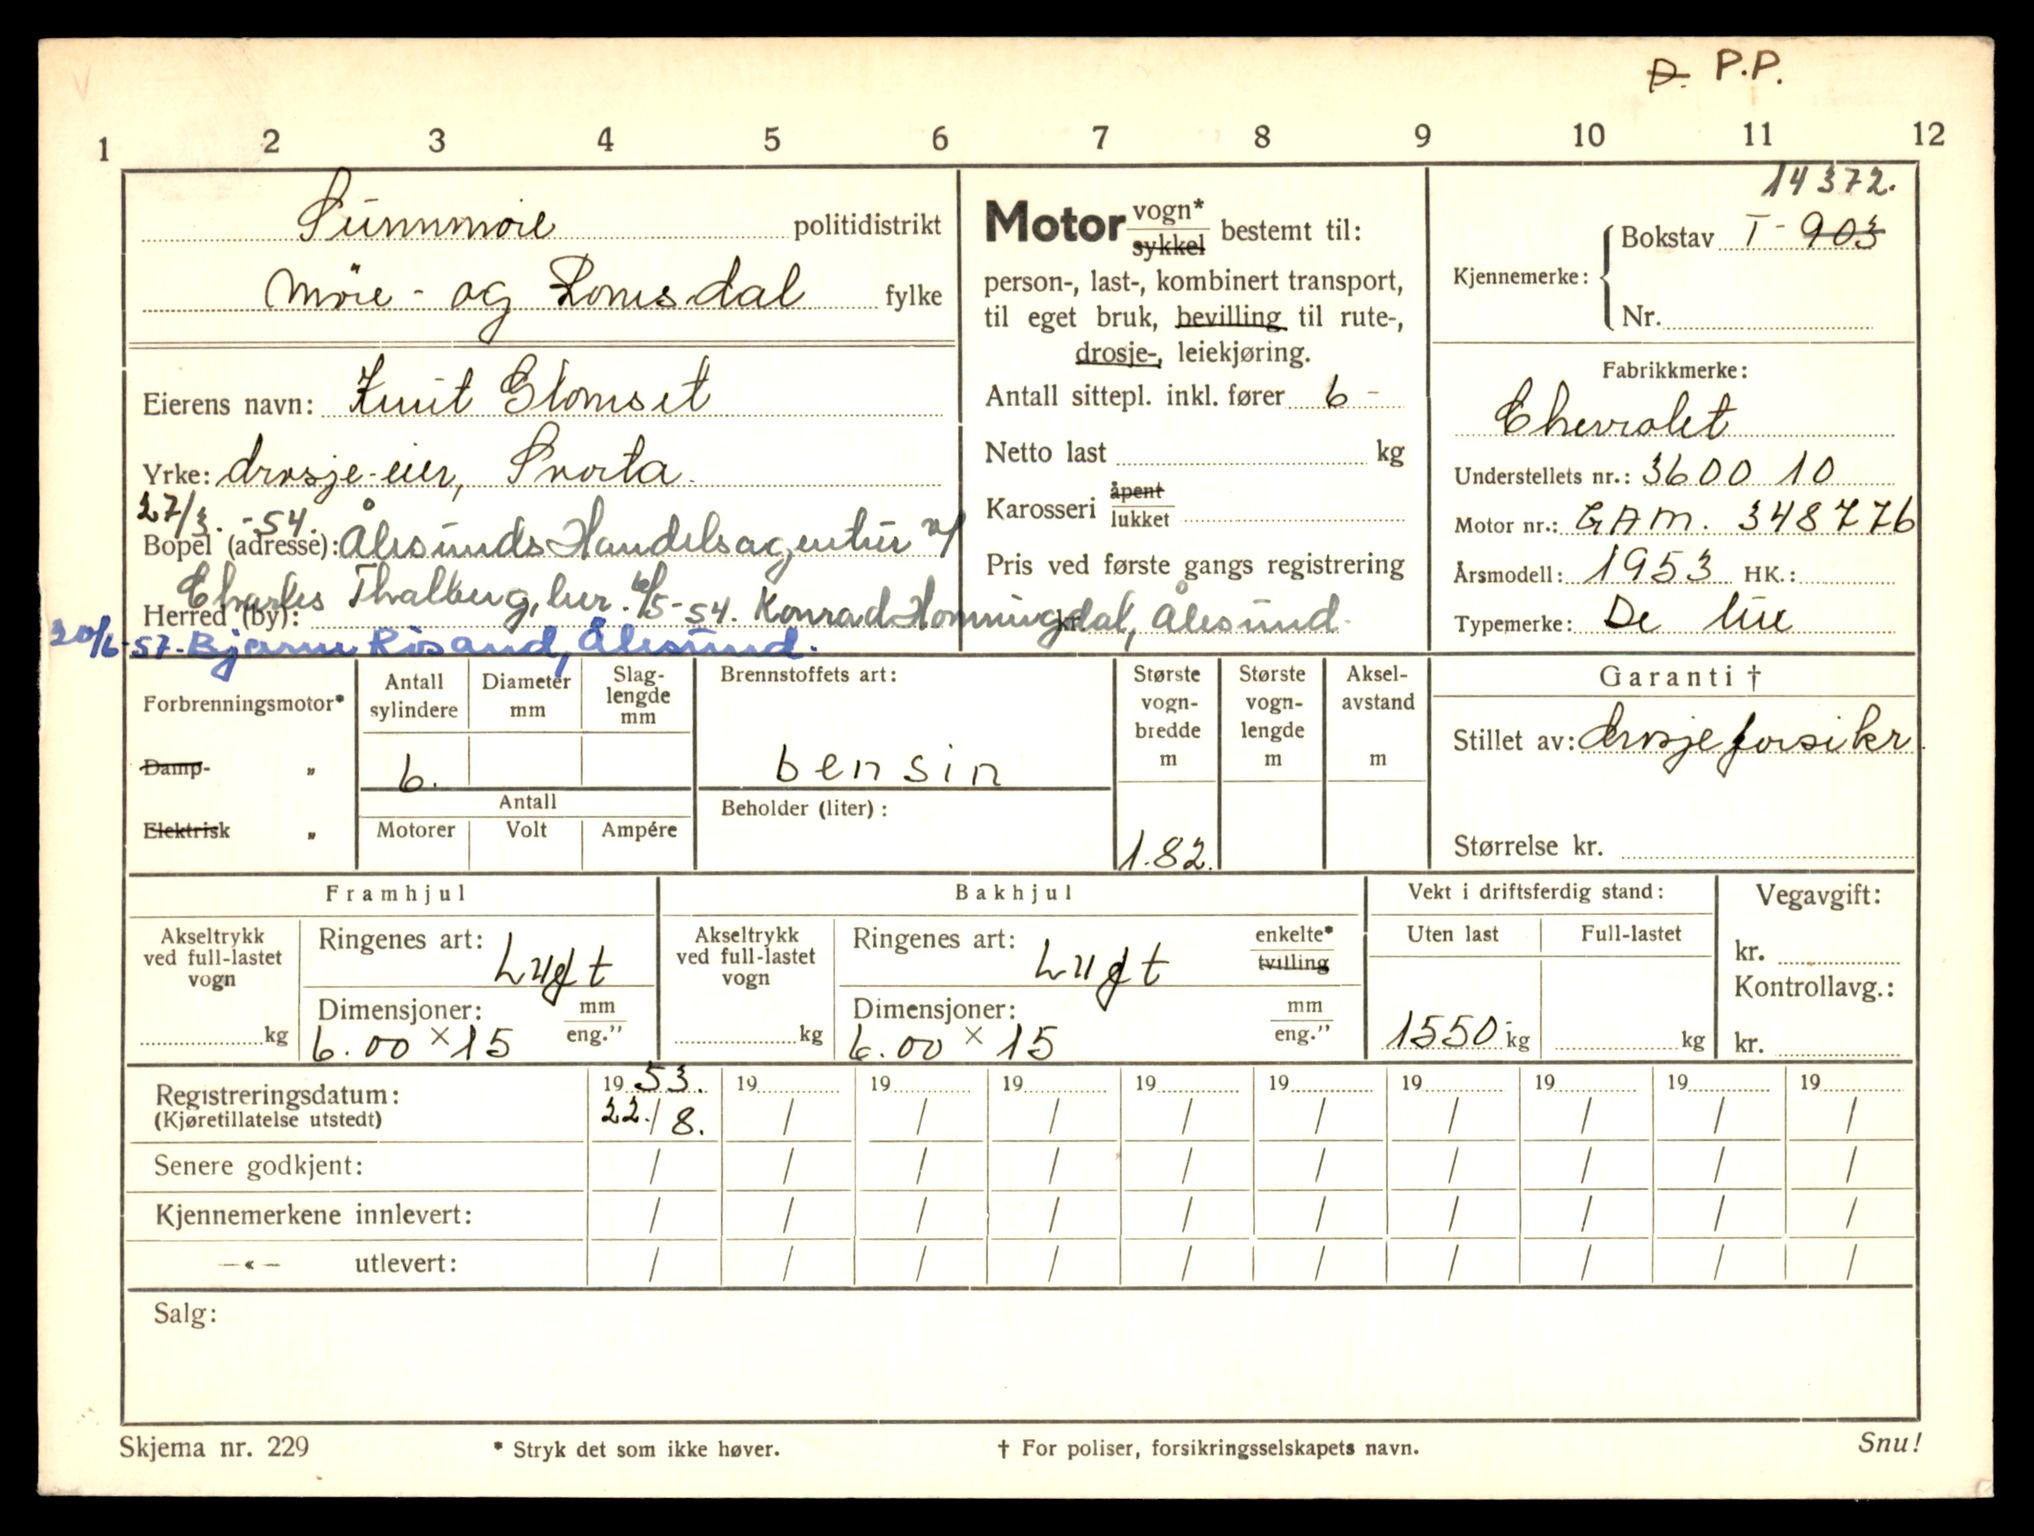 D. P.P.
1 2 3 4 5 6 7 8 9 10 11 12
Sunnmøre politidistrikt
Møre- og Romsdal fylke
Eierens navn: Knut Glomset
Yrke: drosje-eier, Svorta.
27/3.-54.
Bopel (adresse): Ålesunds Handelsagentur v/
Charles Thalberg, her. 6/5-54. Konrad Hornningdal, Ålesund.
Herred (by):
20/6-57. Bjarne Risand, Ålesund.
Motor vogn*
sykkel bestemt til:
person-, last-, kombinert transport,
til eget bruk, bevilling til rute-,
drosje-, leiekjøring.
Antall sittepl. inkl. fører 6 -
Netto last kg
Karosseri åpent
lukket
Pris ved første gangs registrering
kr.
14372.
Kjennemerke: Bokstav T - 903
Nr.
Fabrikkmerke:
Chevrolet
Understellets nr.: 3600 10
Motor nr.: GAM. 348776
Årsmodell: 1953 HK.:
Typemerke: De luxe
Forbrenningsmotor*
Damp- „
Elektrisk „
Antall sylindere
Diameter mm
Slag-
lengde
mm
6.
Antall
Motorer Volt Ampére
Brennstoffets art:
bensin
Beholder (liter):
Største
vogn-
bredde
m
1.82.
Største
vogn-
lengde
m
Aksel-
avstand
m
Garanti †
Stillet av: drosjeforsikr.
Størrelse kr.
Framhjul
Akseltrykk
ved full-lastet
vogn
kg
Ringenes art: Luft
Dimensjoner: mm
6.00 × 15 eng.”
Bakhjul
Akseltrykk
ved full-lastet
vogn
kg
Ringenes art: Luft enkelte*
tvilling
Dimensjoner: mm
6.00 × 15 eng.”
Vekt i driftsferdig stand:
Uten last Full-lastet
1550 kg kg
Vegavgift:
kr.
Kontrollavg.:
kr.
Registreringsdatum: 1953. 19 19 19 19 19 19 19 19 19
(Kjøretillatelse utstedt) 22./8. / / / / / / / / /
Senere godkjent: / / / / / / / / / /
Kjennemerkene innlevert: / / / / / / / / / /
—«— utlevert: / / / / / / / / / /
Salg:
Skjema nr. 229 * Stryk det som ikke høver. † For poliser, forsikringsselskapets navn. Snu!